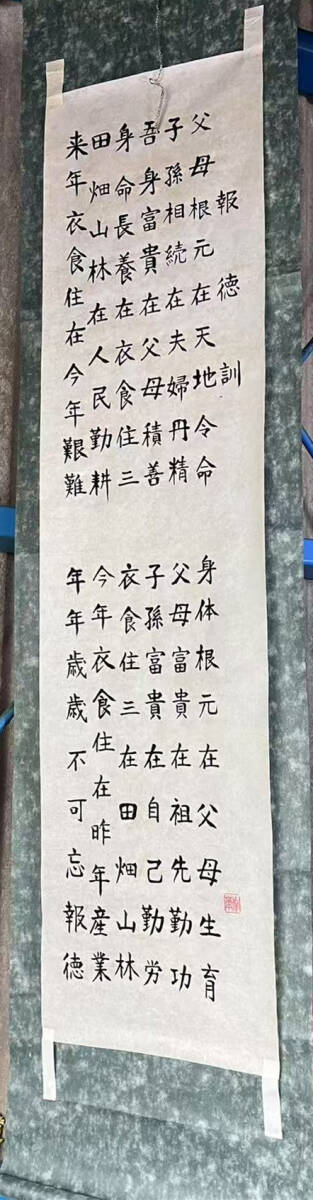 報徳訓
父母根元在天地令命　身体根元在父母生育
子孫相続在夫婦丹精　父母富貴在祖先勤功
吾身富貴在父母積善　子孫富貴在自己勤労
身命長養在衣食住三　衣食住三在田畑山林
田畑山林在人民勤耕　今年衣食住在昨年産業
来年衣食住在今年艱難　年年歳歳不可忘報徳